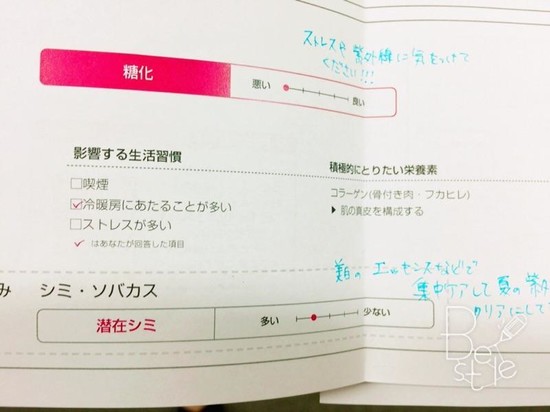 ストレスや紫外線に気をつけて
ください!!!
糖化
悪い
良い
影響する生活習慣
積極的にとりたい栄養素
□喫煙
☑冷暖房にあたることが多い
□ストレスが多い
✓ はあなたが回答した項目
コラーゲン(骨付き肉・フカヒレ)
▶ 肌の真皮を構成する
美白のエッセンスなどで
集中ケアして夏の紫外
クリアにして
み
シミ・ソバカス
潜在シミ
多い
少ない
Be
style